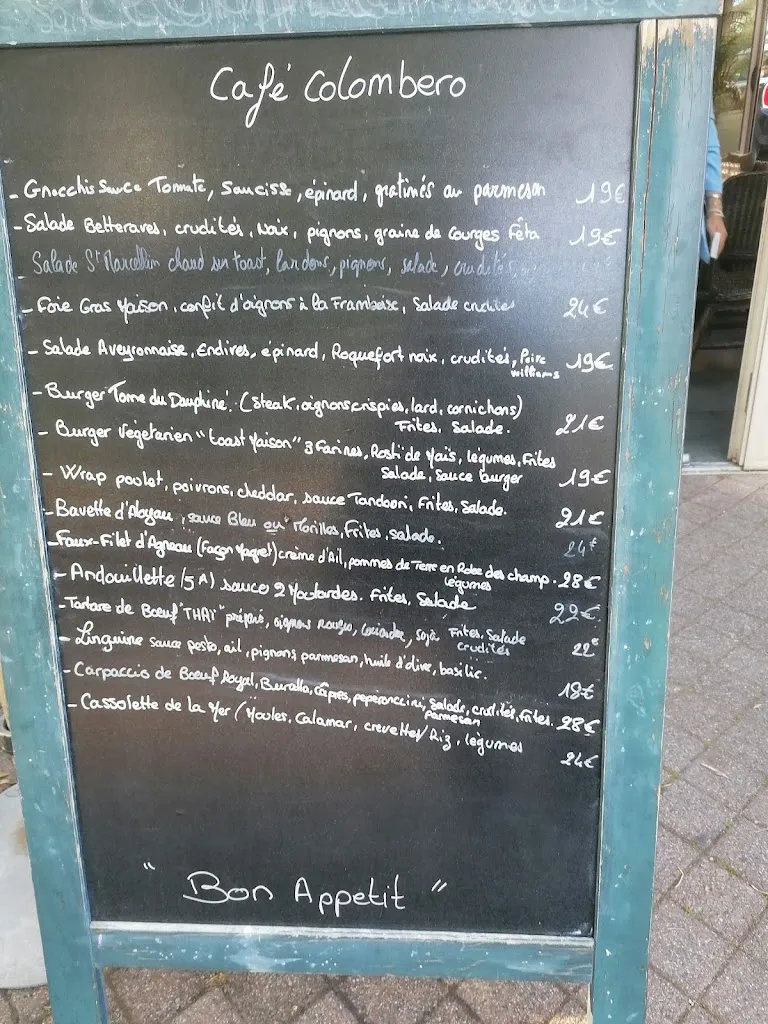 Café Colombero
- Gnocchis Sauce Tomate, Saucisse, épinard, gratinés au parmesan 19€
- Salade Betteraves, crudités, Noix, pignons, graine de Courges Fêta 19€
- Salade St Marcellin chaud sur toast, lardons, pignons, salade, crudités
- Foie Gras Maison, confit d'oignons à la Framboise, Salade crudités 24€
- Salade Aveyronnaise, Endives, épinard, Roquefort noix, crudités, Poire 19€
williams
- Burger Tome du Dauphiné. (Steak, oignons crispies, lard, cornichons)
Frites, Salade. 21€
- Burger Végétarien "toast Maison" 3 Farines, Rosti de Maïs, légumes, Frites
Salade, Sauce burger 19€
- Wrap poulet, poivrons, cheddar, sauce Tandoori, Frites, Salade. 21€
- Bavette d'Aloyau, sauce Bleu ou Morilles, Frites, salade. 24€
- Faux-Filet d'Agneau (Façon Magret) crème d'Ail, pommes de Terre en Robe des champ. 28€
légumes
- Andouillette (5A) sauce 2 Moutardes. Frites, Salade 22€
- Tartare de Bœuf "THAÏ" préparé, oignons rouges, Coriandre, soja Frites, Salade 22€
crudités
- Linguine sauce pesto, ail, pignons parmesan, huile d'olive, basilic. 18€
- Carpaccio de Boeuf Royal, Buratta, câpres, peperoncini, Salade, crudités, Frites. 28€
parmesan
- Cassolette de la Mer (Moules, Calamar, crevettes) Riz, légumes 24€
" Bon Appetit "